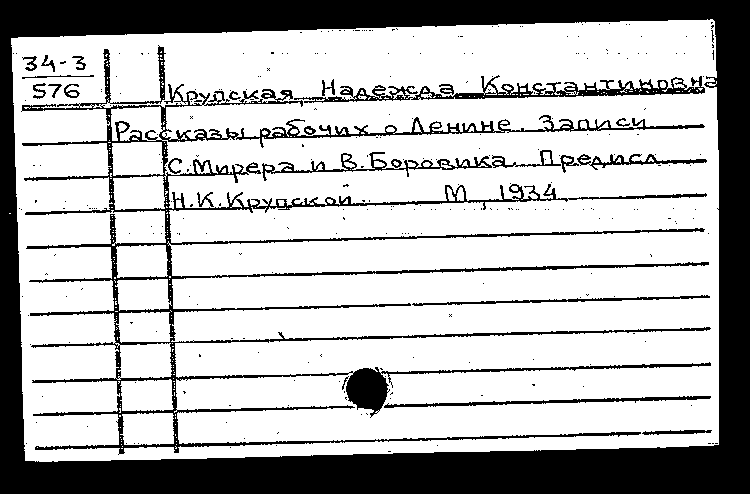 34-3
576
Крупская, Надежда Константиновна
Рассказы рабочих о Ленине. Записи
С.Мирера и В.Боровика. Предисл.
Н.К.Крупской. М., 1934.